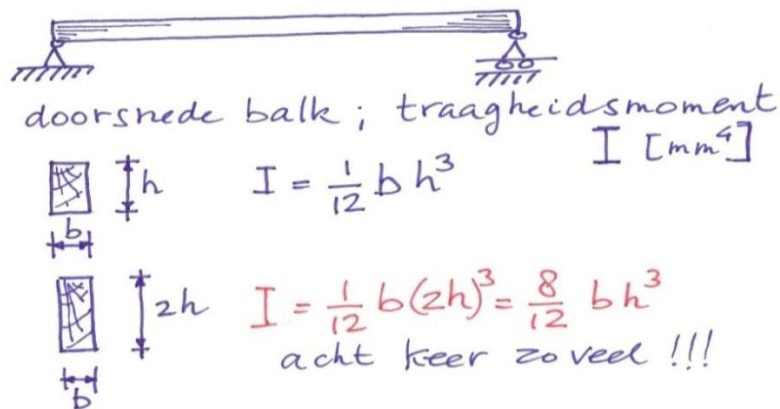 doorsnede balk ; traagheidsmoment
I [mm⁴]
h
I = 1/12 b h³
b
2h
I = 1/12 b(2h)³ = 8/12 b h³
acht keer zoveel !!!
b